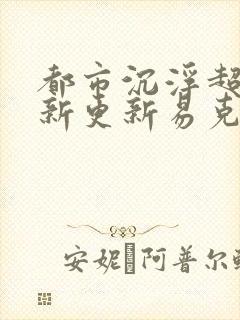 都市沉浮超
新更新易克
安妮·阿普尔